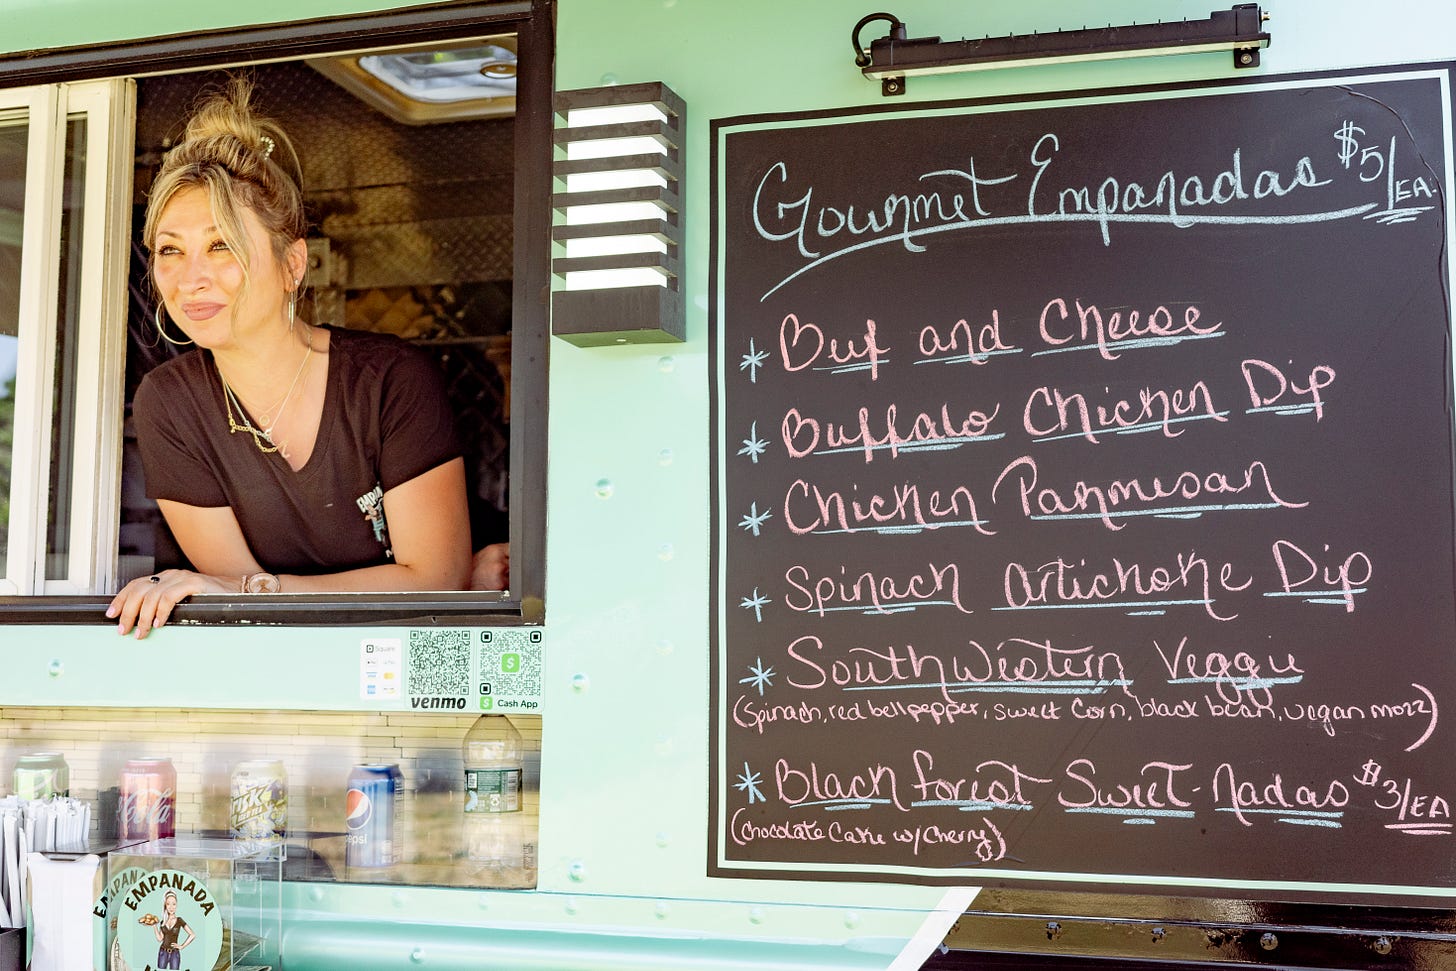 Gourmet Empanadas $5/EA.
* Beef and Cheese
* Buffalo Chicken Dip
* Chicken Parmesan
* Spinach Artichoke Dip
* Southwestern Veggie
(Spinach, red bell pepper, sweet corn, black bean, vegan mozz)
* Black forest Sweet-Nadas $3/EA
(Chocolate Cake w/ Cherry)
Square
venmo
$ Cash App
pepsi
EMPANADA